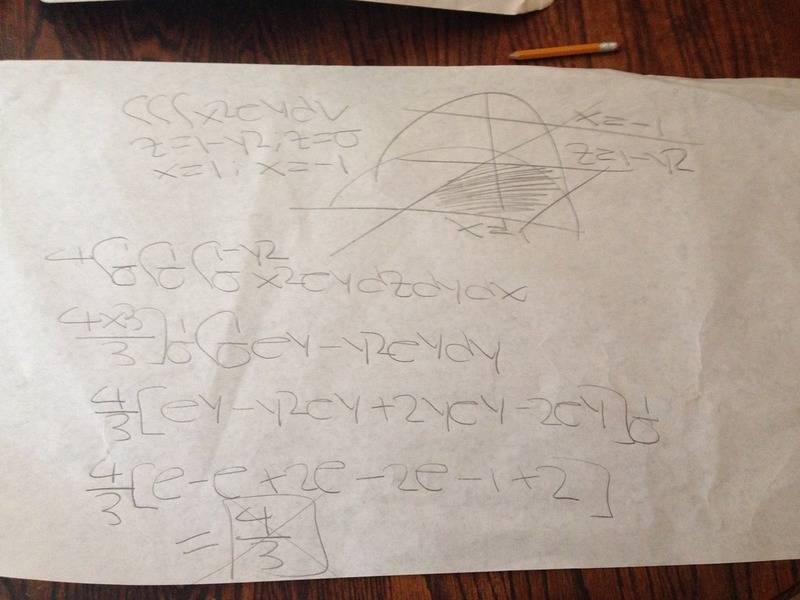 ∫∫∫x2eydV
z=1-y2, z=0
x=1, x=-1
x=-1
z=1-y2
x=1
4∫10∫10∫1-y20 x2eydzdydx
4x3/3]10∫10ey-y2eydy
4/3[ey-y2ey+2yey-2ey]10
4/3[e-e+2e-2e-1+2]
=4/3